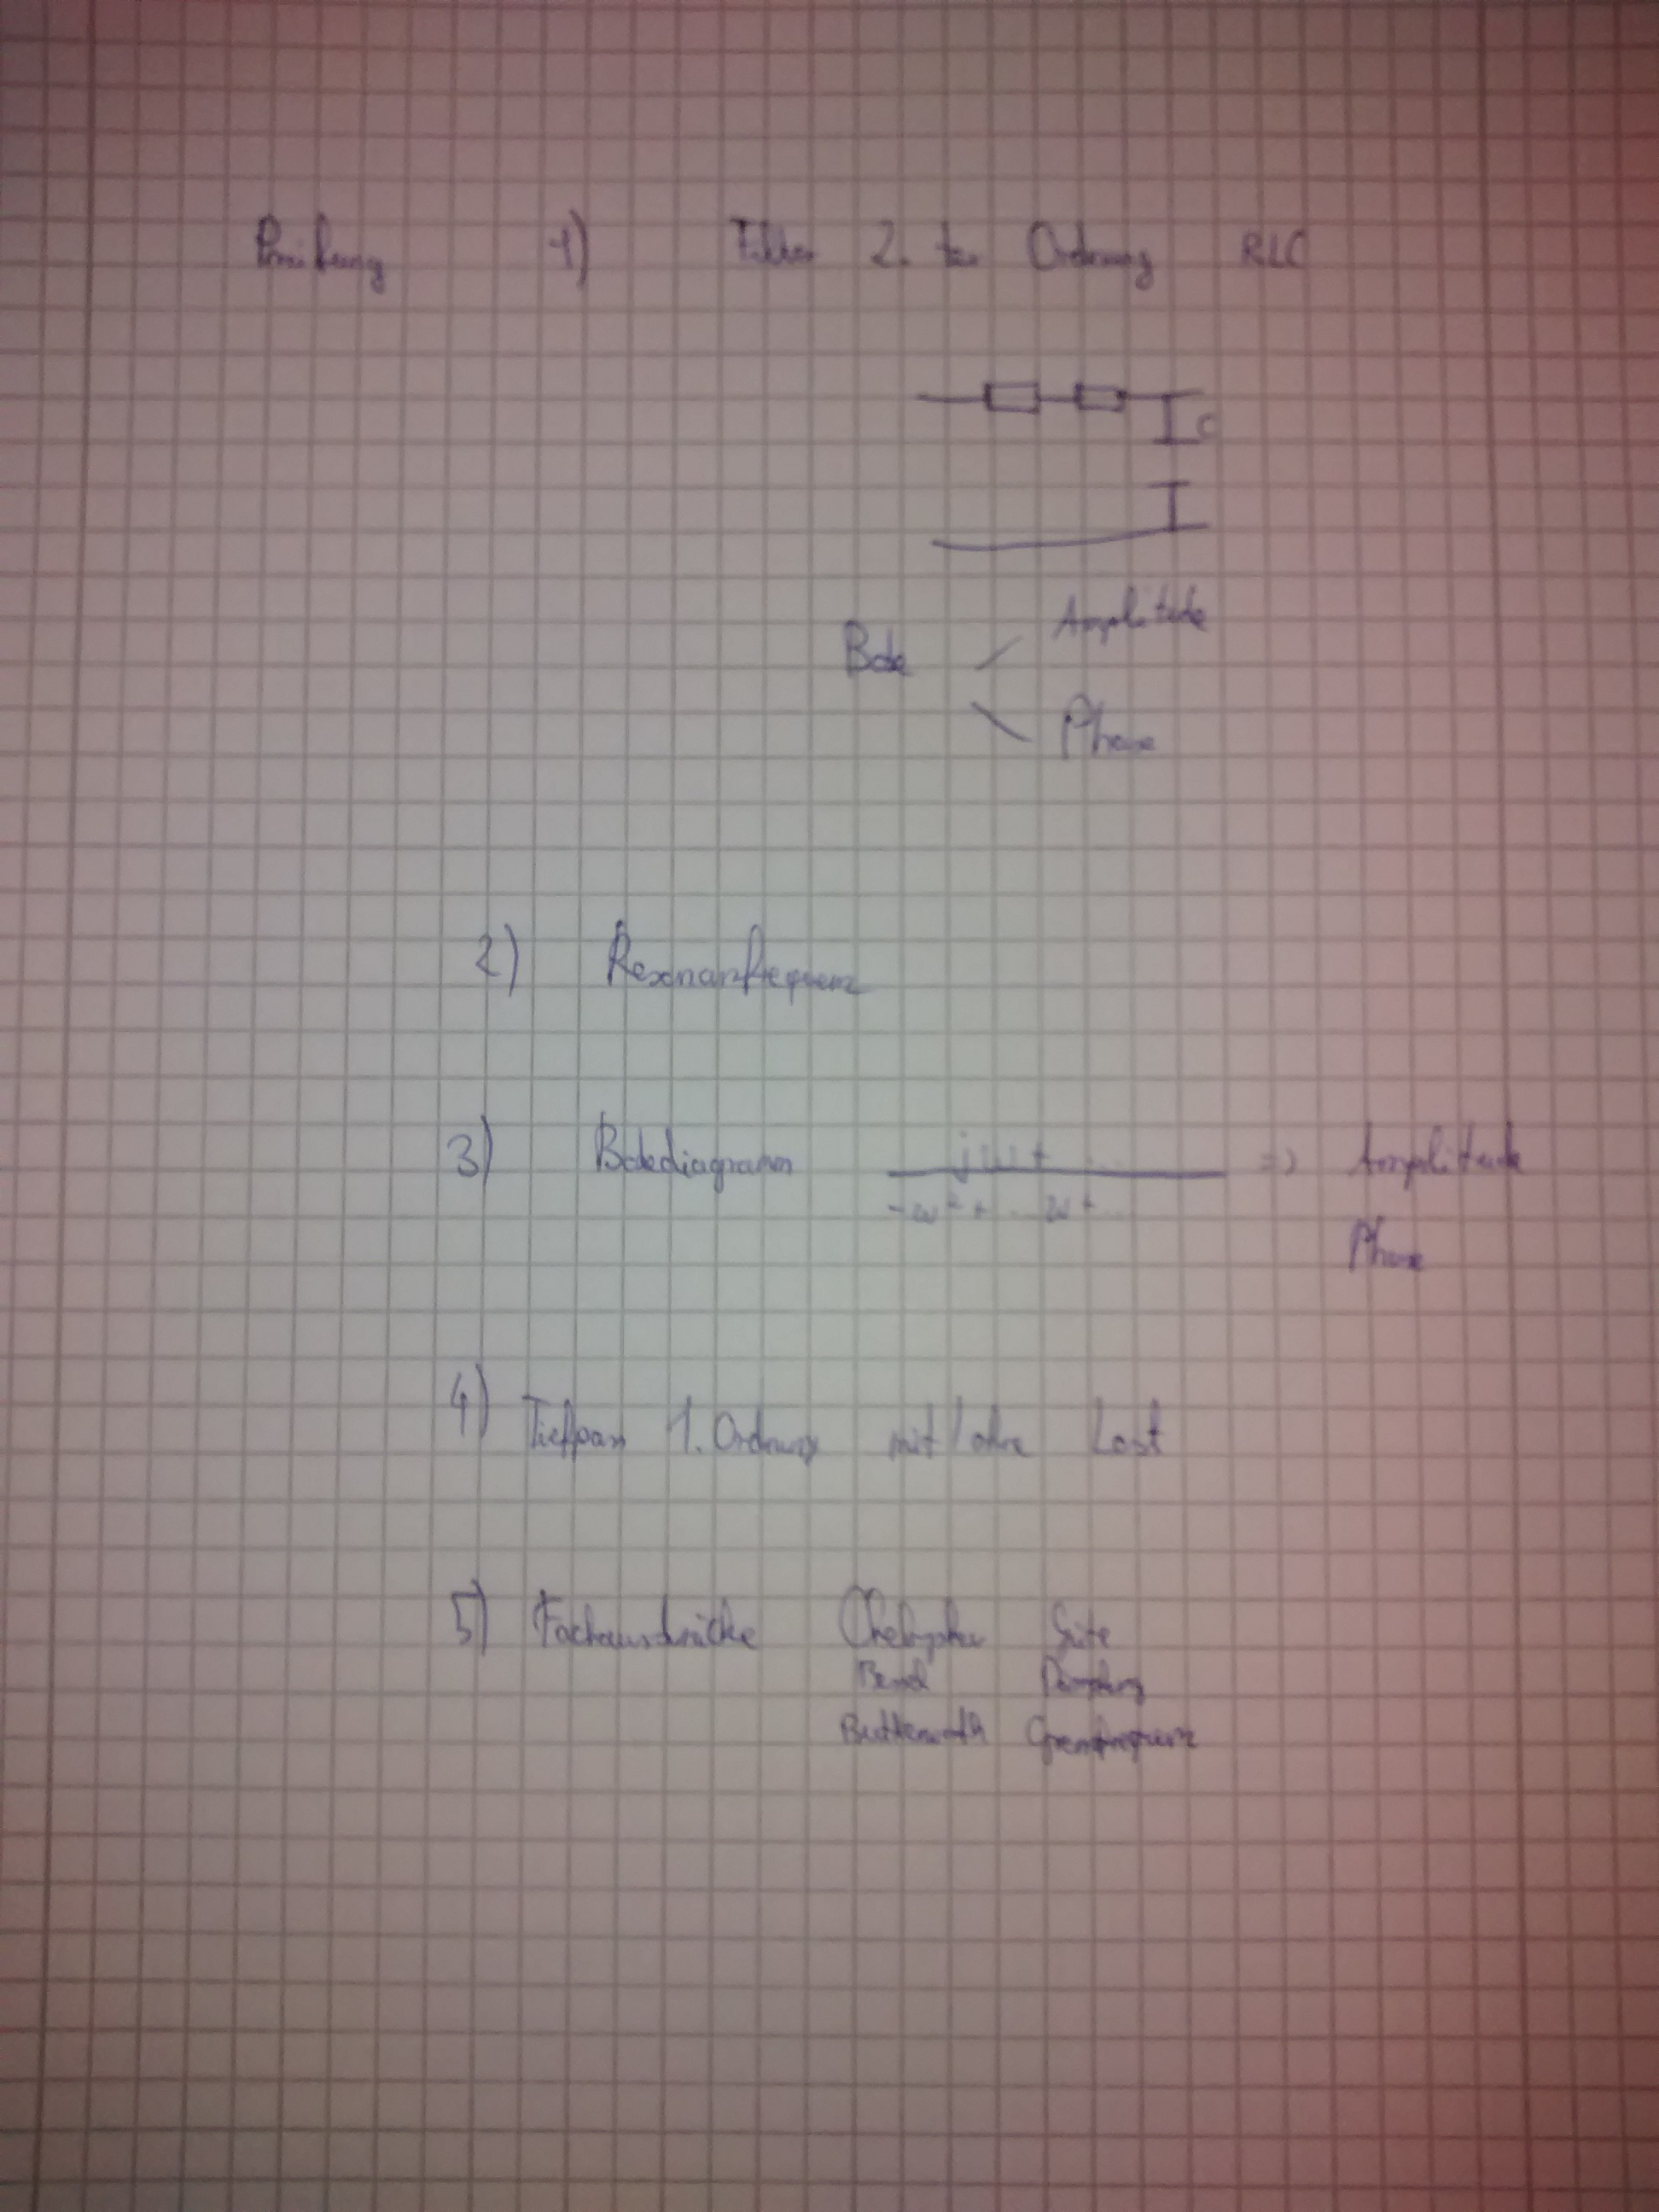 Prüfung 1) Filter 2. ter Ordnung RLC
C
Amplitude
Bode
Phase
2) Resonanzfrequenz
3) Bodediagramm jw + ... => Amplitude
-w² + ... w + ...
Phase
4) Tiefpass 1. Ordnung mit/ohne Last
5) Fachausdrücke Güte
Bessel Dämpfung
Butterworth Grenzfrequenz